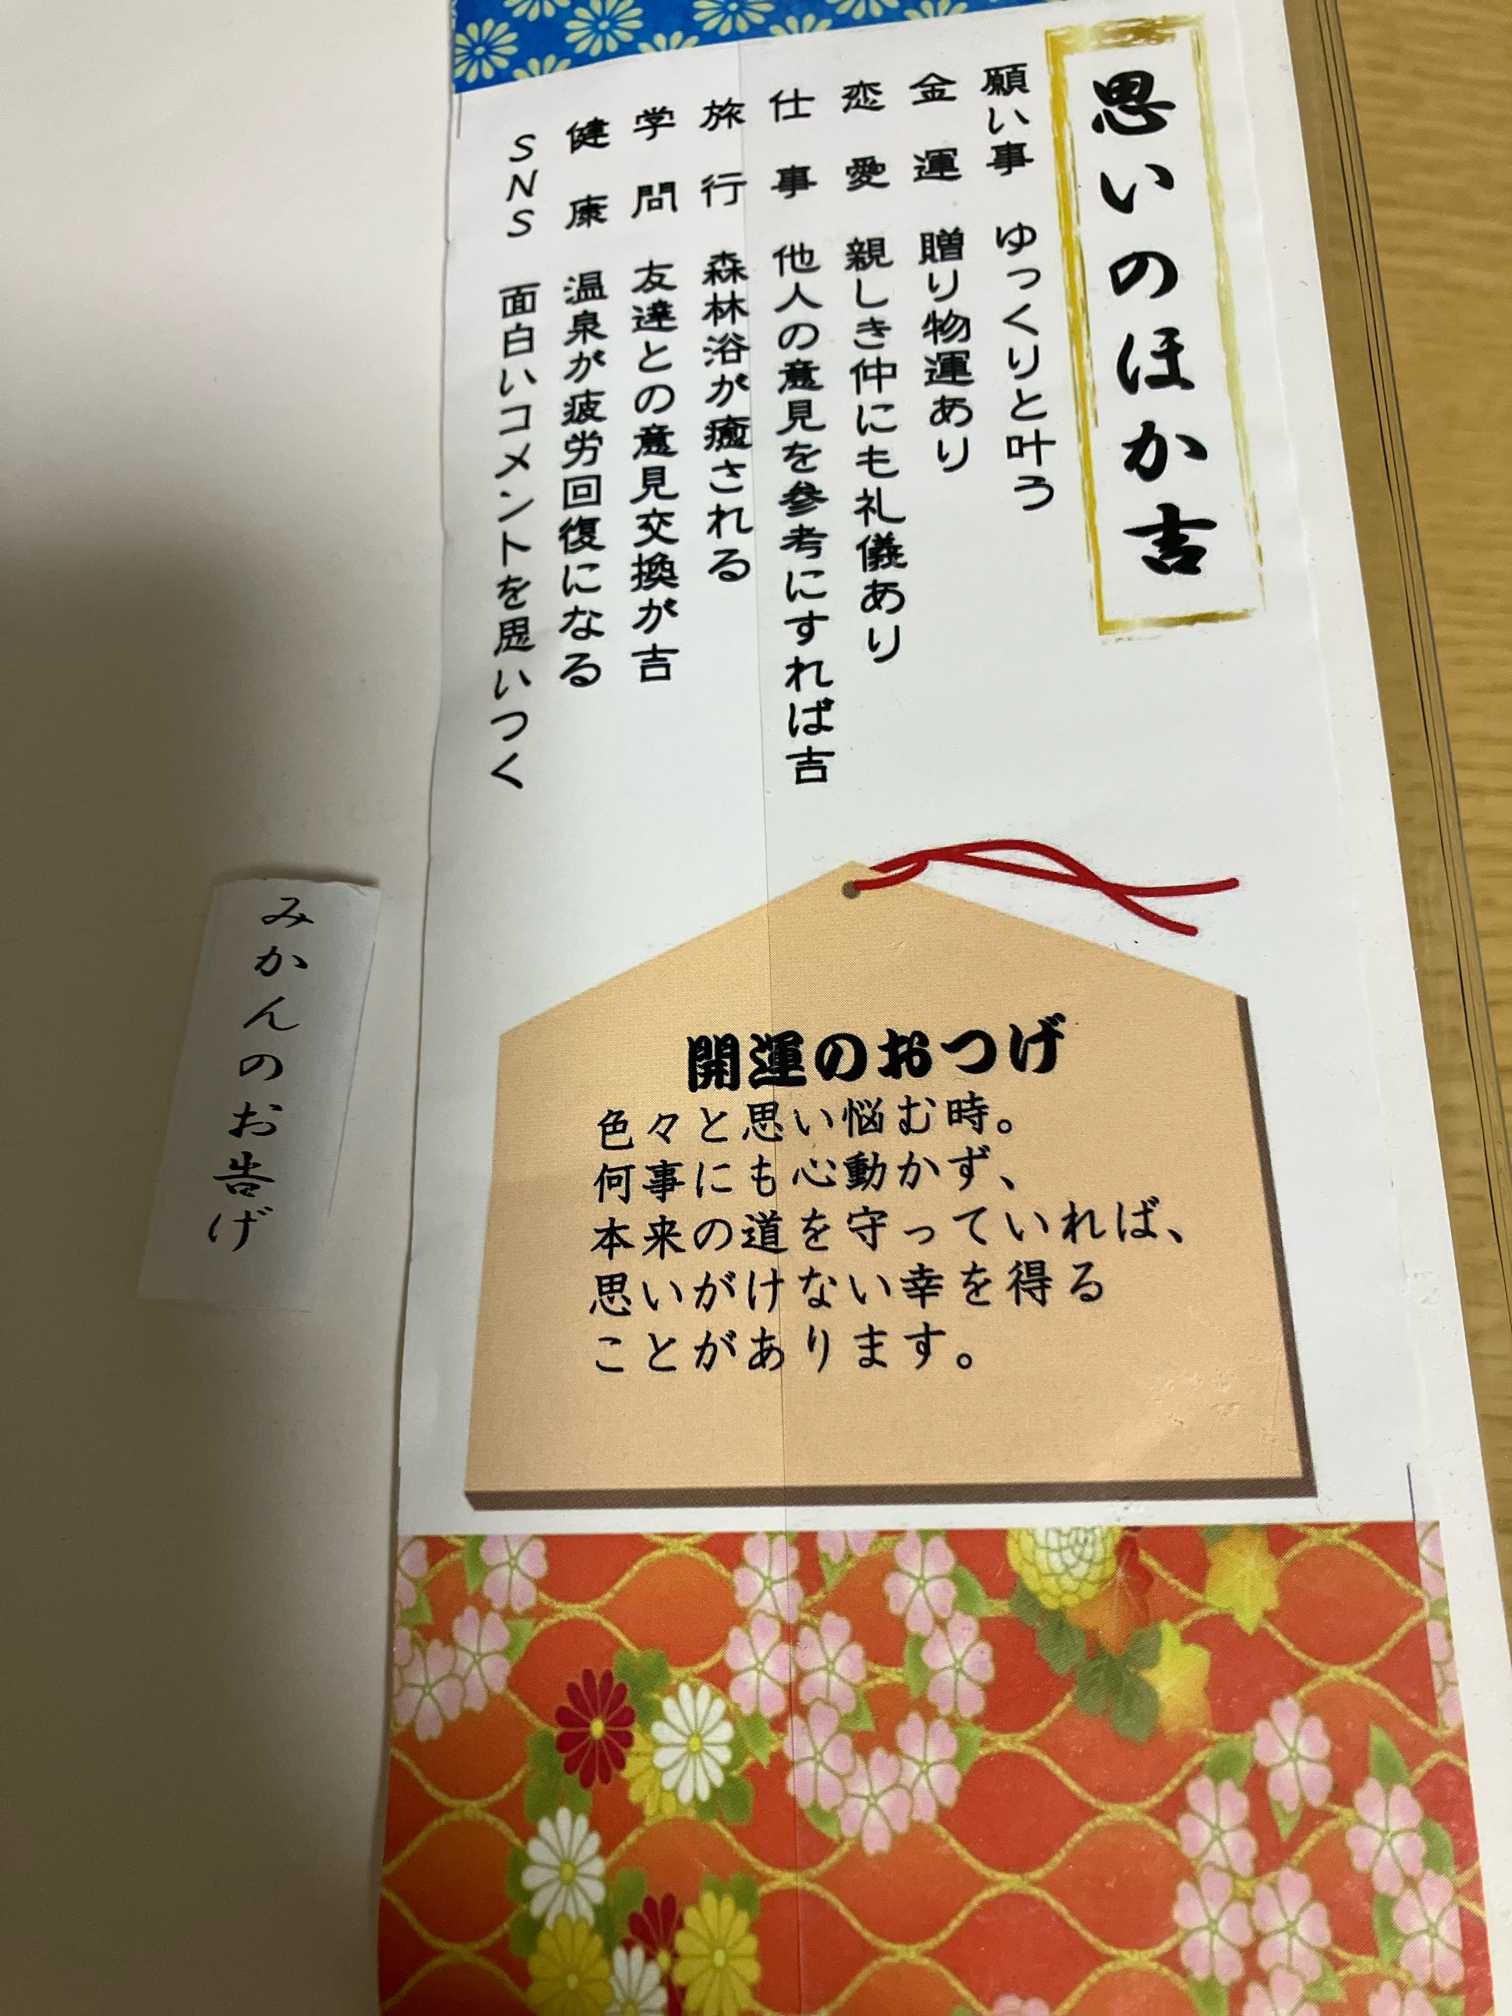 思いのほか吉
願い事 ゆっくりと叶う
金運 贈り物運あり
恋愛 親しき仲にも礼儀あり
仕事 他人の意見を参考にすれば吉
旅行 森林浴が癒される
学問 友達との意見交換が吉
健康 温泉が疲労回復になる
SNS 面白いコメントを思いつく
開運のおつげ
色々と思い悩む時。
何事にも心動かず、
本来の道を守っていれば、
思いがけない幸を得る
ことがあります。
みかんのお告げ